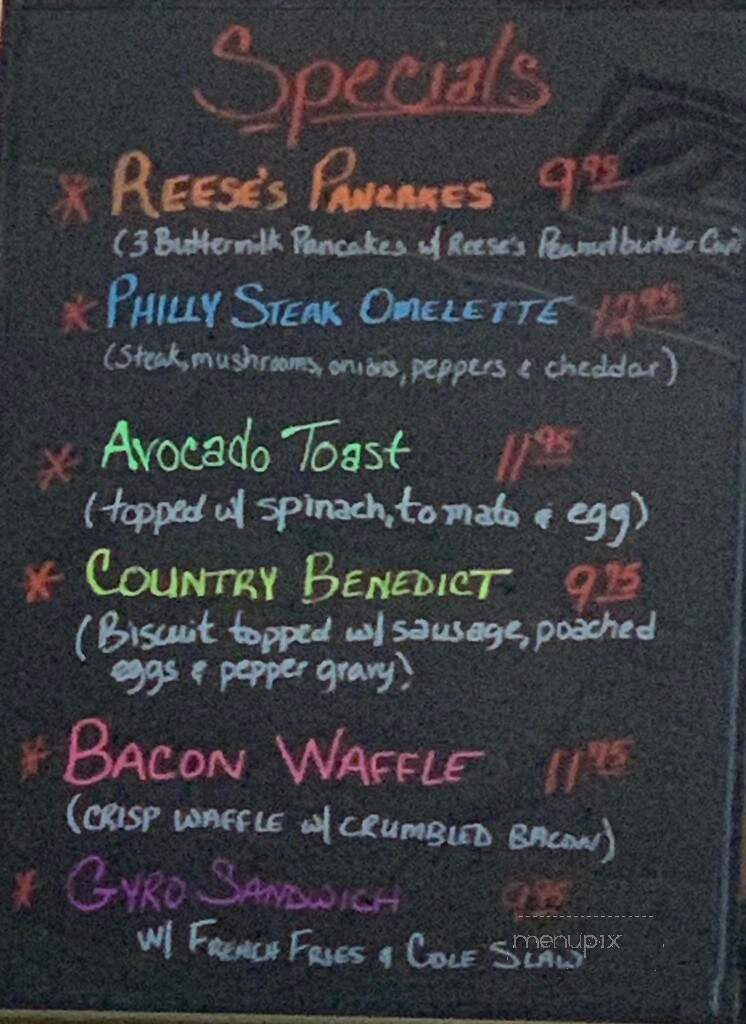 Specials
* REESE'S PANCAKES 9.95
(3 Buttermilk Pancakes w/ Reese's Peanutbutter
* PHILLY STEAK OMELETTE 12.95
(Steak, mushrooms, onions, peppers & cheddar)
* Avocado Toast 11.95
(topped w/ spinach, tomato & egg)
* COUNTRY BENEDICT
(Biscuit topped w/ sausage, poached
eggs & pepper gravy)
* BACON WAFFLE
(CRISP WAFFLE w/ CRUMBLED BACON)
* GYRO SANDWICH
W/ FRENCH FRIES & COLE SLAW
menupix